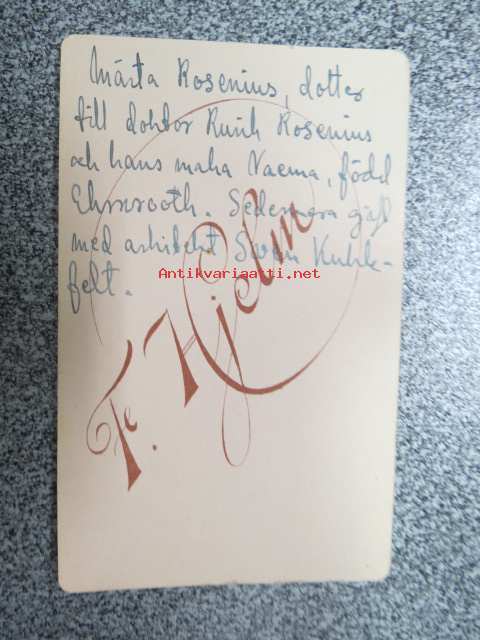 Märta Rosenius, dotter
till doktor Runik Rosenius
och hans maka Naema, född
Ehrnrooth. Sedermera gift
med arkitekt Sven Kuhle-
felt.
Antikvariaatti.net
Fr. Hjelm